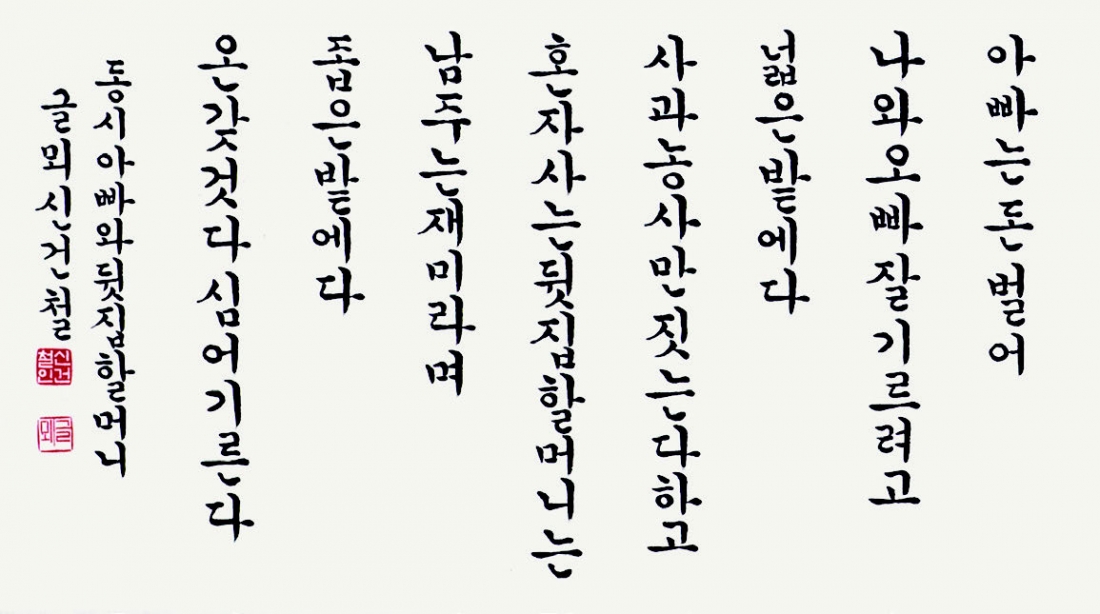 아빠는돈벌어
나와오빠잘기르려고
넓은밭에다
사과농사만짓는다하고
혼자사는뒷집할머니는
남주는재미라며
좁은밭에다
온갖것다심어기른다
동시아빠와뒷집할머니
글뫼신건철
신건철인
글뫼